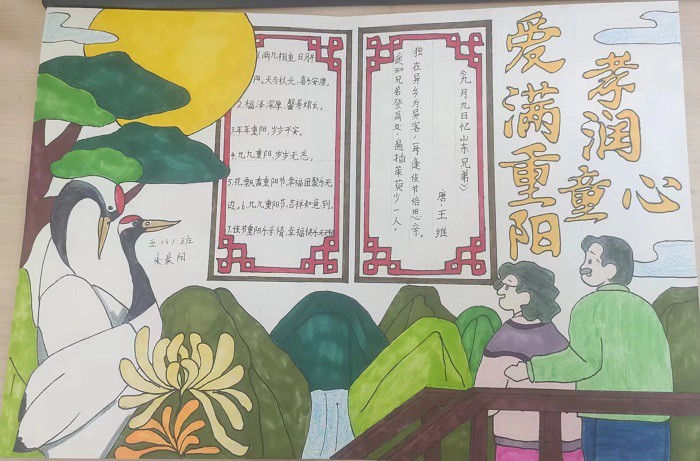 爱满重阳
孝润童心
1.两九相重,日月并
阳。天与秋光,喜乐安康。
2.福泽深厚,馨寿绵长。
3.年年重阳,岁岁平安。
4.九九重阳,岁岁无恙。
5.花飘香重阳节,幸福团聚乐无
边。6.九九重阳节,吉祥如意到。
7.佳节重阳乐享情,幸福快乐天
《九月九日忆山东兄弟》
唐·王维
独在异乡为异客,每逢佳节倍思亲。
遥知兄弟登高处,遍插茱萸少一人。
五(5)班